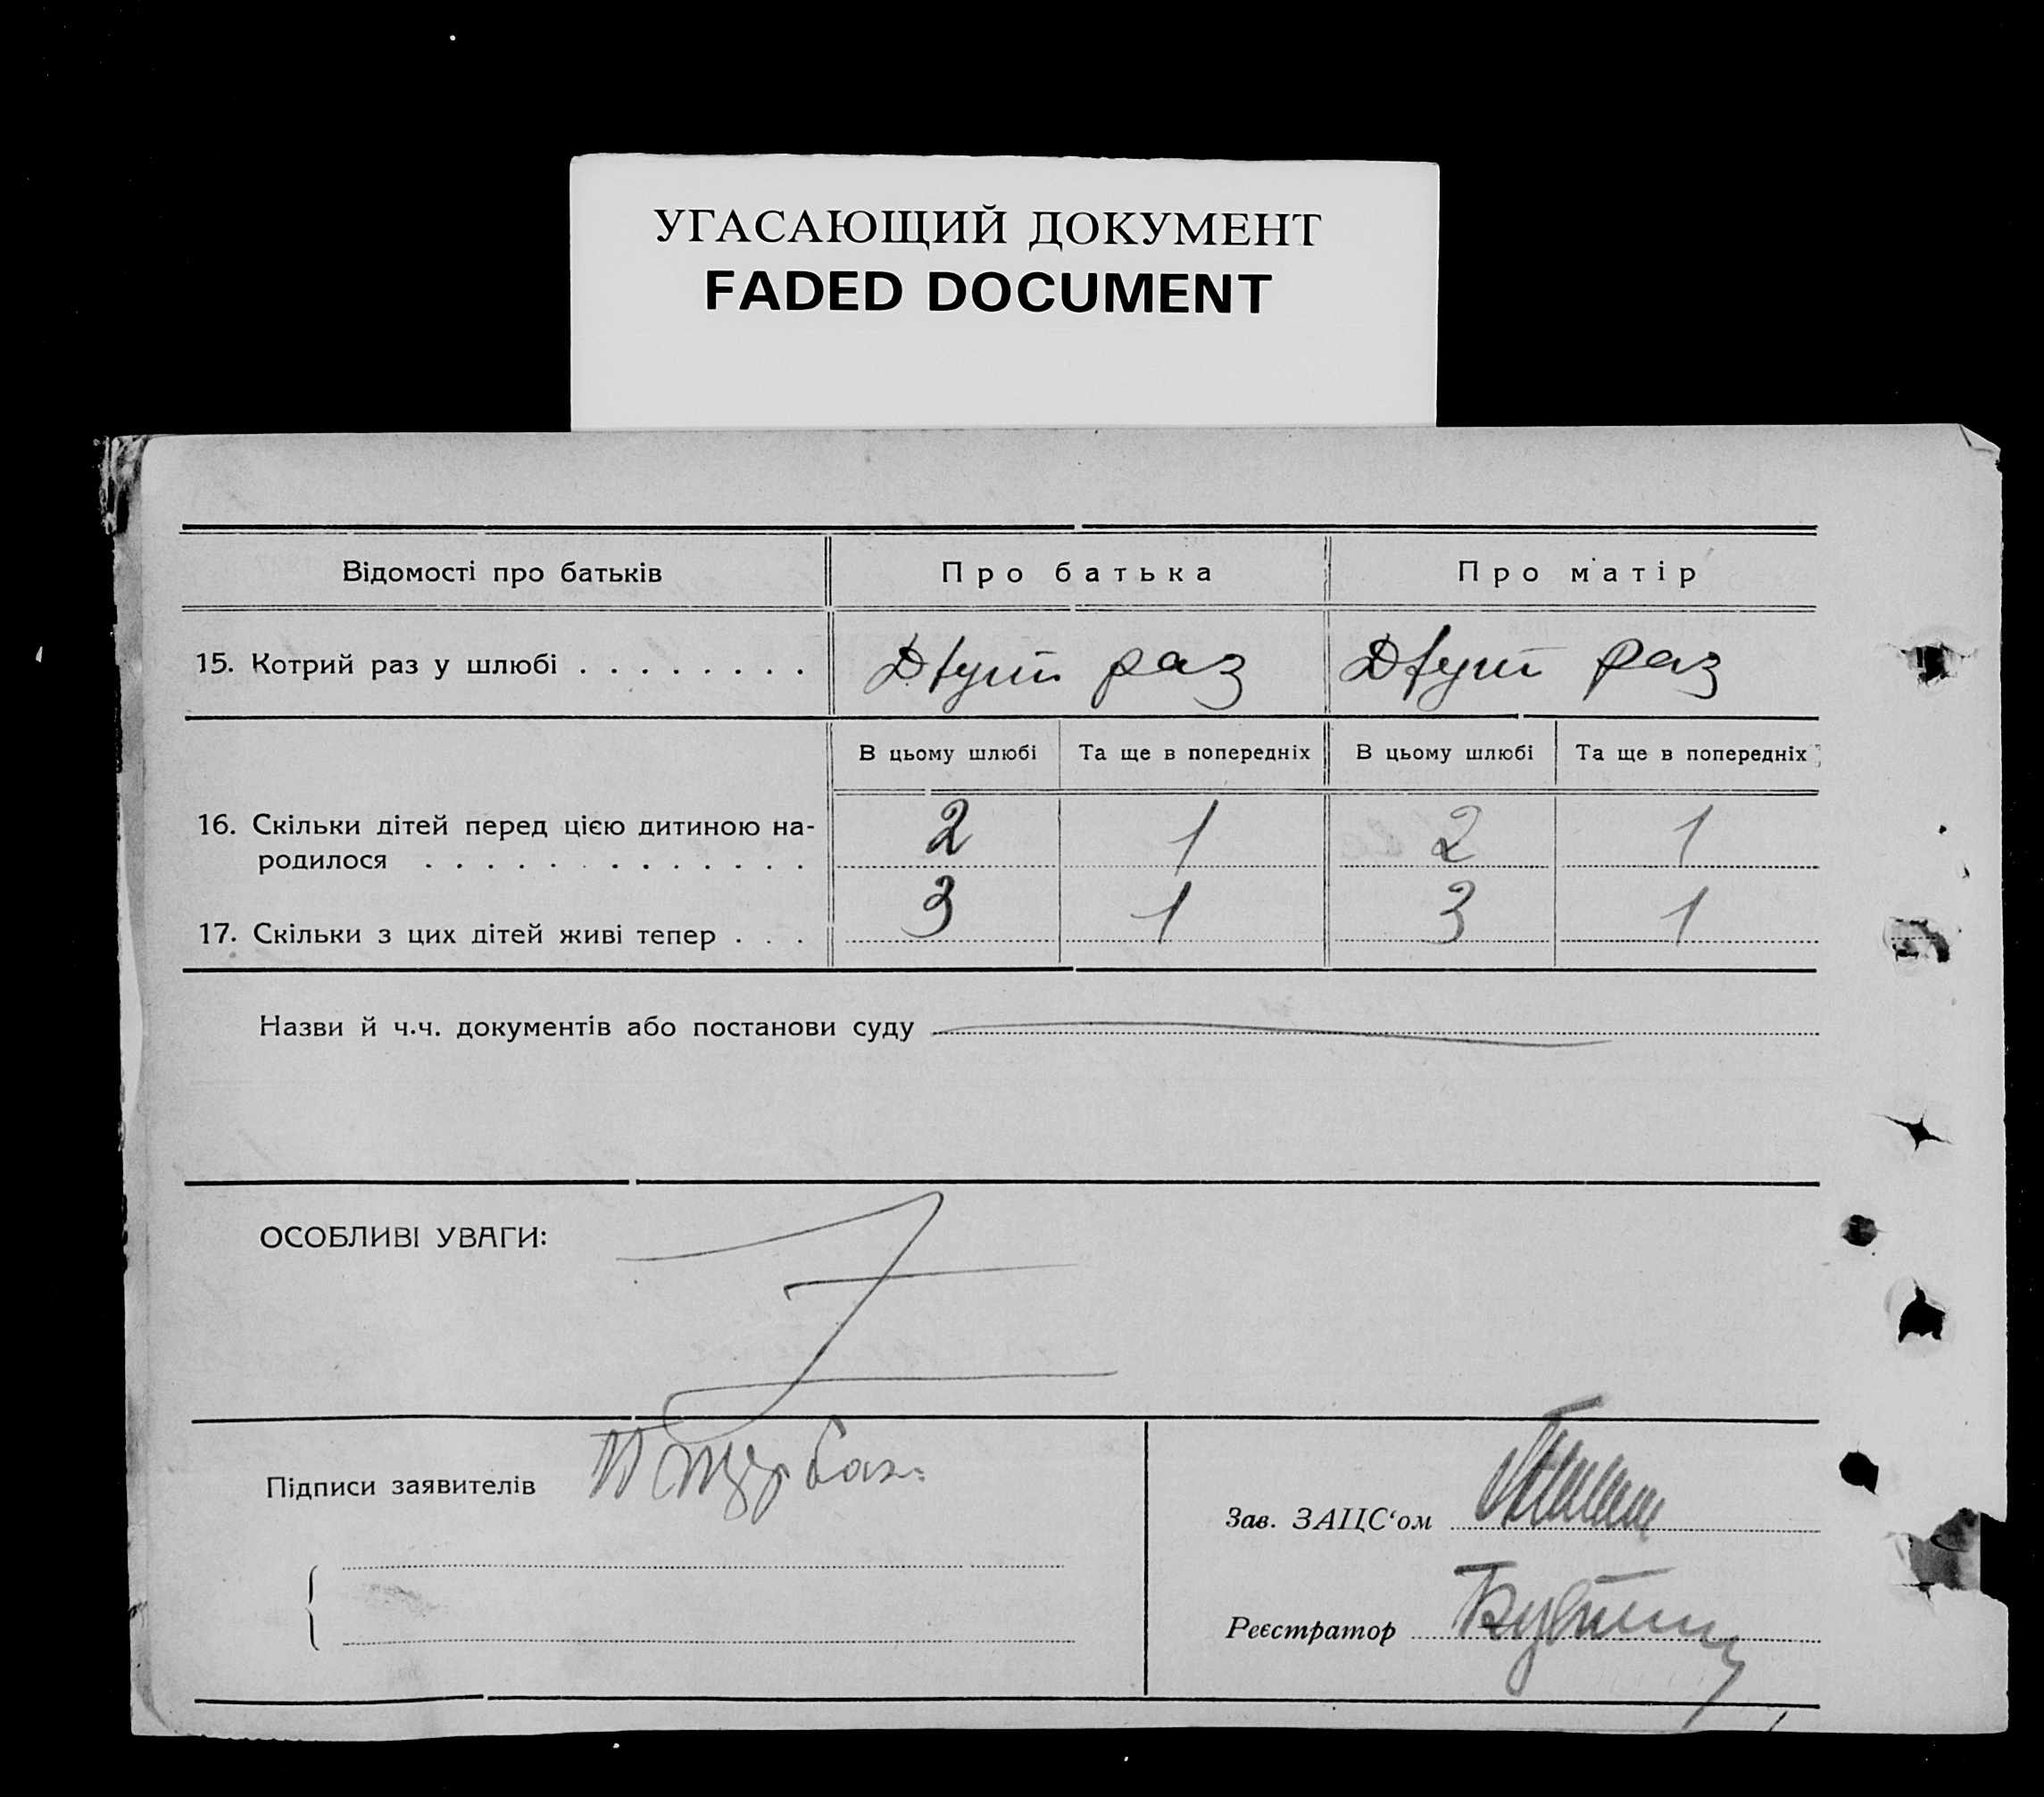 УГАСАЮЩИЙ ДОКУМЕНТ
FADED DOCUMENT
Відомості про батьків
Про батька
Про матір
15. Котрий раз у шлюбі . . . . . . . .
Другий раз
Другий раз
В цьому шлюбі
Та ще в попередніх
В цьому шлюбі
Та ще в попередніх
16. Скільки дітей перед цією дитиною на-
родилося . . . . . . . . . . . . .
2
1
2
1
17. Скільки з цих дітей живі тепер . . .
3
1
3
1
Назви й ч.ч. документів або постанови суду
ОСОБЛИВІ УВАГИ:
Підписи заявителів
Зав. ЗАЦС‘ом
Реєстратор